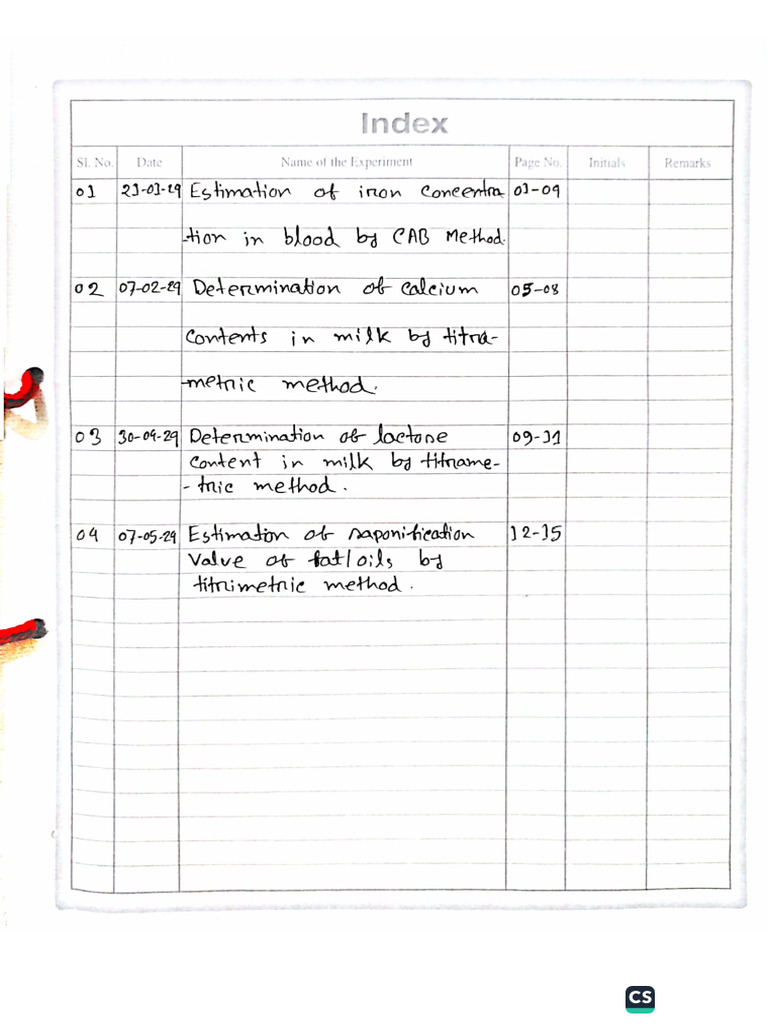 Index
Sl. No. Date Name of the Experiment Page No. Initials Remarks
01 21-01-24 Estimation of iron Concentra 01-04
-tion in blood by CAB Method.
02 07-02-24 Determination of calcium 05-08
Contents in milk by titra-
-metric method.
03 30-04-24 Determination of lactose 09-11
Content in milk by titrame-
-tric method.
04 07-05-24 Estimation of saponification 12-15
Value of fat/oils by
titrimetric method.
CS